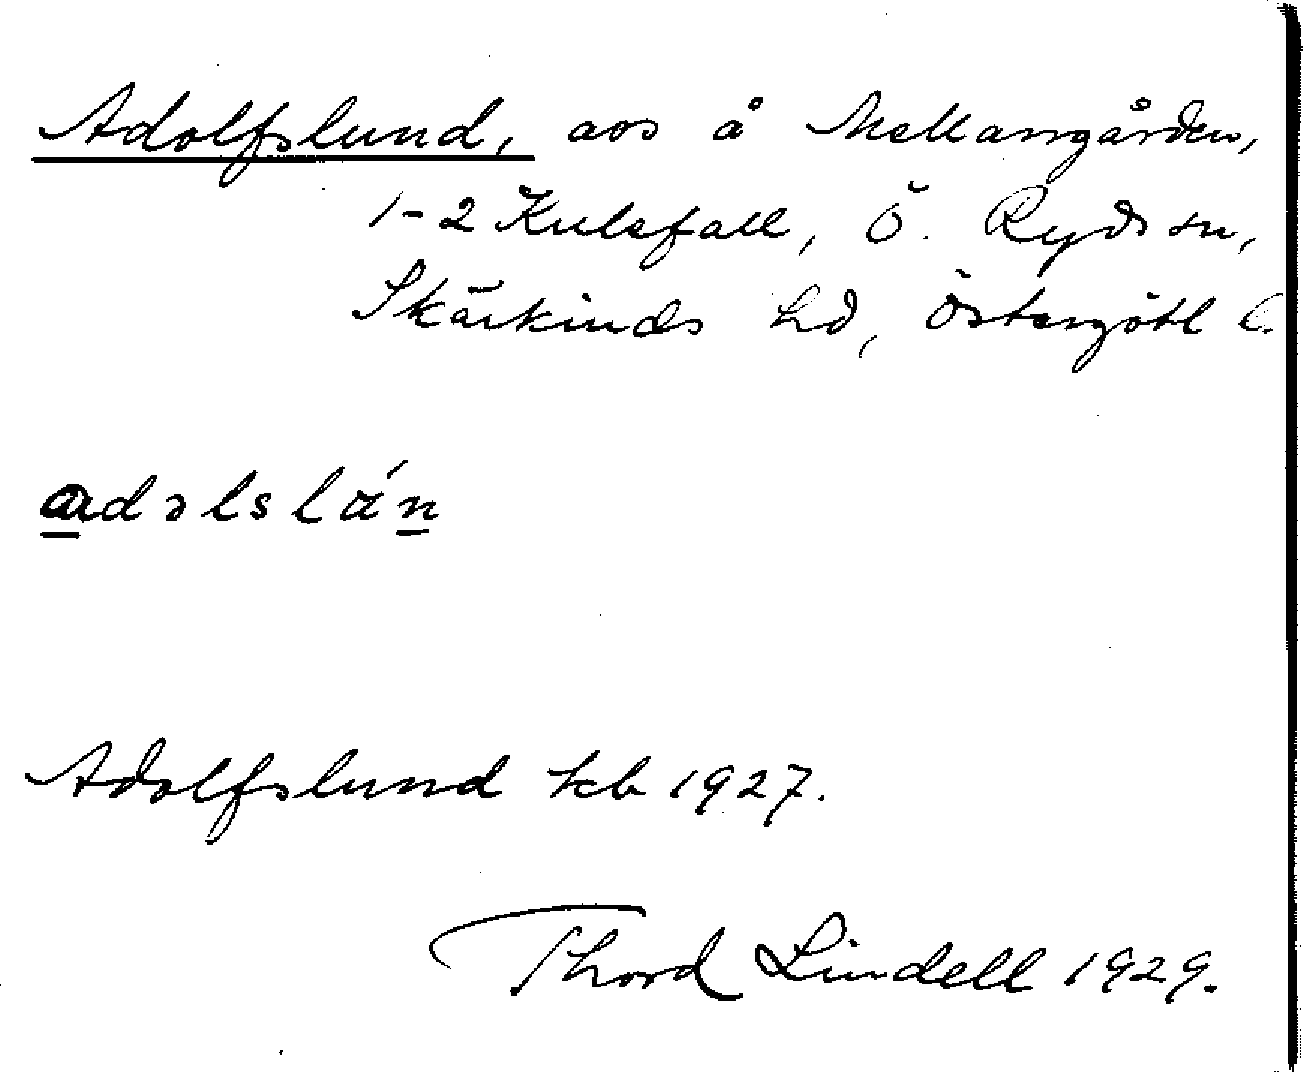 Adolfslund, avs å Mellangården,
1-2 Kulsfall, Ö. Ryds sn,
Skärkinds hd, Östergötl l.
adɔlslán
Adolfslund kb 1927.
Thord Lindell 1929.